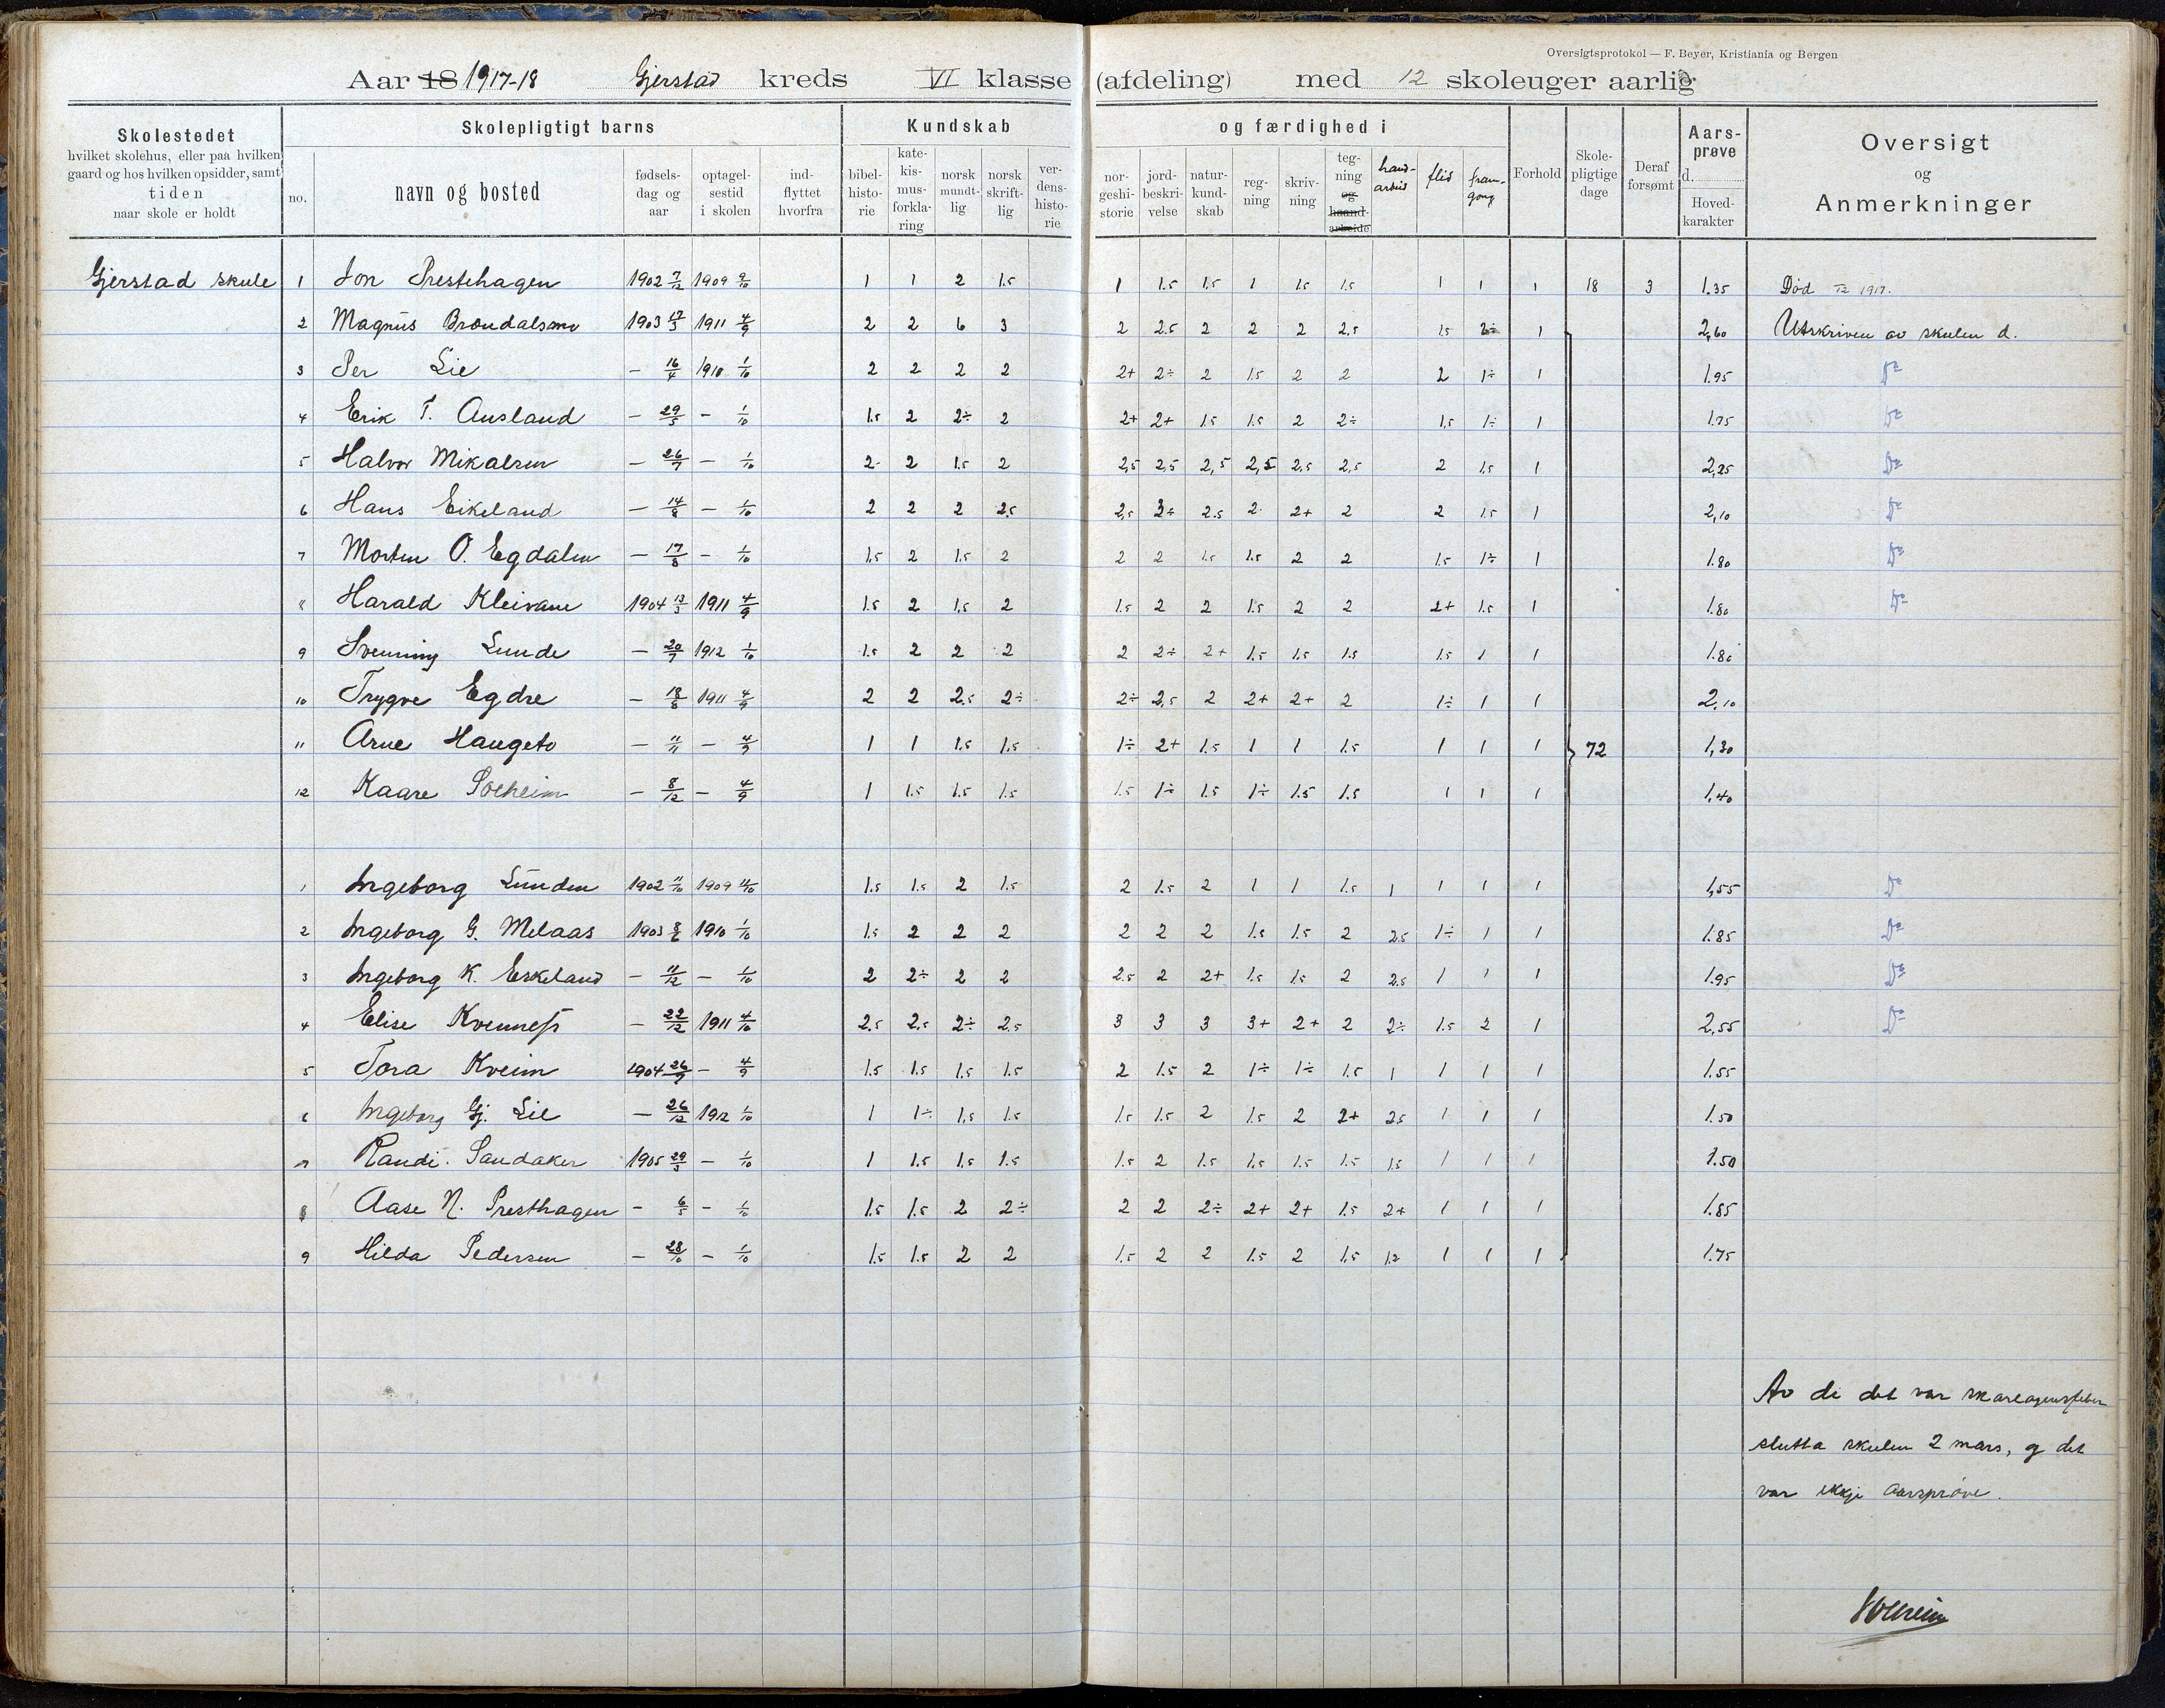 Oversigtsprotokol — F. Beyer, Kristiania og Bergen
Aar 18 1917-18 Gjerstad kreds VI klasse (afdeling) med 12 skoleuger aarlig
Skolestedet
hvilket skolehus, eller paa hvilken
gaard og hos hvilken opsidder, samt
tiden
naar skole er holdt
Skolepligtigt barns
no.
navn og bosted
fødsels-
dag og
aar
optagel-
sestid
i skolen
ind-
flyttet
hvorfra
Kundskab
bibel-
histo-
rie
kate-
kis-
mus-
forkla-
ring
norsk
mundt-
lig
norsk
skrift-
lig
ver-
dens-
histo-
rie
og færdighed i
nor-
geshi-
storie
jord-
beskri-
velse
natur-
kund-
skab
reg-
ning
skriv-
ning
teg-
ning
og
haand-
arbeide
hand-
arbeid
flid
fram-
gong
Forhold
Skole-
pligtige
dage
Deraf
forsømt
Aars-
prøve
d.
Hoved-
karakter
Oversigt
og
Anmerkninger
Gjerstad skule 1 Jon Prestehagen 1902 7/12 1909 9/10 1 1 2 1.5 1 1.5 1.5 1 1.5 1.5 1 1 1 18 3 1.35 Død /12 1917.
2 Magnus Brøndalsmo 1903 17/3 1911 4/9 2 2 6 3 2 2.5 2 2 2 2.5 1.5 2÷ 1 2,60 Utskriven av skulen d.
3 Per Lie – 16/4 1910 1/10 2 2 2 2 2+ 2÷ 2 1.5 2 2 2 1÷ 1 1.95 Do
4 Erik T. Ausland – 29/5 – 1/10 1.5 2 2÷ 2 2+ 2+ 1.5 1.5 2 2÷ 1,5 1÷ 1 1.75 Do
5 Halvor Mikalsen – 26/7 – 1/10 2 2 1.5 2 2,5 2,5 2,5 2,5 2,5 2,5 2 1.5 1 2,25 Do
6 Hans Eikeland – 14/8 – 1/10 2 2 2 2.5 2,5 3+ 2.5 2 2+ 2 2 1.5 1 2,10 Do
7 Morten O. Egdalen – 17/8 – 1/10 1.5 2 1.5 2 2 2 1.5 1.5 2 2 1.5 1÷ 1 1.80 Do
8 Harald Kleivane 1904 13/3 1911 4/9 1.5 2 1.5 2 1.5 2 2 1.5 2 2 2+ 1.5 1 1.80 Do
9 Svenning Lunde – 20/7 1912 1/10 1.5 2 2 2 2 2÷ 2+ 1.5 1.5 1.5 1.5 1 1 1.80
10 Trygve Egdre – 18/8 1911 4/9 2 2 2.5 2÷ 2÷ 2,5 2 2+ 2+ 2 1÷ 1 1 2,10
11 Arne Haugeto – 11/11 – 4/9 1 1 1.5 1.5 1÷ 2+ 1.5 1 1 1.5 1 1 1 72 1,30
12 Kaare Solheim – 8/12 – 4/9 1 1.5 1.5 1.5 1.5 1÷ 1.5 1÷ 1.5 1.5 1 1 1 1,40
1 Ingeborg Lunden 1902 11/10 1909 1.5 1.5 2 1.5 2 1.5 2 1 1 1.5 1 1 1 1 1,55 Do
2 Ingeborg G. Melaas 1903 8/6 1910 1/10 1.5 2 2 2 2 2 2 1.5 1.5 2 2.5 1÷ 1 1 1.85 Do
3 Ingeborg K. Eskeland – 11/12 – 1/10 2 2÷ 2 2 2.5 2 2+ 1.5 1.5 2 2.5 1 1 1 1.95 Do
4 Elise Kvenness – 22/12 1911 4/10 2.5 2,5 2÷ 2,5 3 3 3 3+ 2+ 2 2÷ 1.5 2 1 2,55 Do
5 Tora Kveim 1904 26/9 – 4/9 1.5 1.5 1.5 1.5 2 1.5 2 1÷ 1÷ 1.5 1 1 1 1 1.55
6 Ingeborg Gj. Lie – 26/12 1912 1/10 1 1÷ 1,5 1.5 1.5 1.5 2 1.5 2 2+ 2.5 1 1 1 1.50
7 Randi Sandaker 1905 29/3 – 1/10 1 1.5 1.5 1.5 1.5 2 1.5 1.5 1.5 1.5 1.5 1 1 1 1.50
8 Aase N. Presthagen – 6/5 – 1/10 1.5 1.5 2 2÷ 2 2 2÷ 2+ 2+ 1.5 2+ 1 1 1 1.85
9 Hilda Pedersen – 28/10 – 1/10 1.5 1.5 2 2 1.5 2 2 1.5 2 1.5 1.2 1 1 1 1.75
Av di det var skarlagensfeber
slutta skulen 2 mars, og det
var ikkje aarsprøve.
Solheim